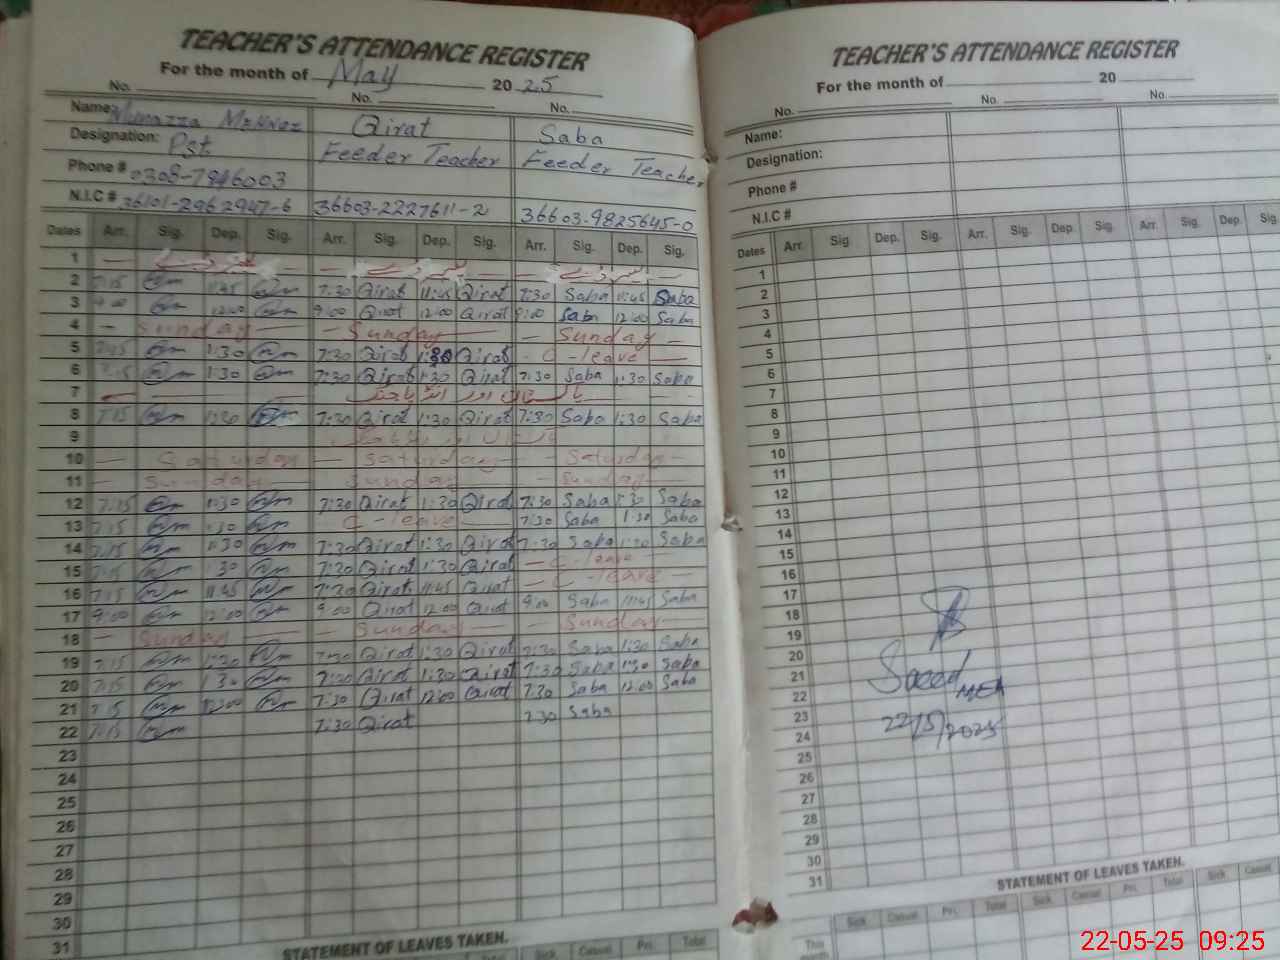 TEACHER'S ATTENDANCE REGISTER
For the month of May 2025
No. No. No.
Name: Qirat Saba
Designation: Pst Feeder Teacher Feeder Teacher
Phone # 0308-7846003
N.I.C # 36101-2962947-6 36603-2227611-2 36603-9825645-0
Dates Arr. Sig. Dep. Sig. Arr. Sig. Dep. Sig. Arr. Sig. Dep. Sig.
1
2 7:15 11:45 7:30 Qirat 11:45 Qirat 7:30 Saba 11:45 Saba
3 9:00 12:00 9:00 Qirat 12:00 Qirat 9:00 Saba 12:00 Saba
4 Sunday Sunday Sunday
5 1:30 7:30 Qirat 1:30 Qirat C-leave
6 1:30 7:30 Qirat 1:30 Qirat 7:30 Saba 1:30 Saba
7
8 7:15 1:30 7:30 Qirat 1:30 Qirat 7:30 Saba 1:30 Saba
9
10 Saturday Saturday Saturday
11 Sunday Sunday Sunday
12 7:15 1:30 7:30 Qirat 1:30 Qirat 7:30 Saba 1:30 Saba
13 7:15 1:30 C-leave 7:30 Saba 1:30 Saba
14 7:15 1:30 7:30 Qirat 1:30 Qirat 7:30 Saba 1:30 Saba
15 7:15 1:30 7:30 Qirat 1:30 Qirat C-leave
16 7:15 11:45 7:30 Qirat 11:45 Qirat C-leave
17 9:00 12:00 9:00 Qirat 12:00 Qirat 9:00 Saba 11:45 Saba
18 Sunday Sunday Sunday
19 7:15 1:30 7:30 Qirat 1:30 Qirat 7:30 Saba 1:30 Saba
20 7:15 1:30 7:30 Qirat 1:30 Qirat 7:30 Saba 1:30 Saba
21 7:15 12:00 7:30 Qirat 12:00 Qirat 7:30 Saba 12:00 Saba
22 7:15 7:30 Qirat 7:30 Saba
23
24
25
26
27
28
29
30
31
STATEMENT OF LEAVES TAKEN.
Sick Casual Pri. Total
TEACHER'S ATTENDANCE REGISTER
For the month of 20
No. No. No.
Name:
Designation:
Phone #
N.I.C #
Dates Arr. Sig. Dep. Sig. Arr. Sig. Dep. Sig. Arr. Sig. Dep. Sig.
1
2
3
4
5
6
7
8
9
10
11
12
13
14
15
16
17
18
19
20
21
22
23
24
25
26
27
28
29
30
31
Saeed
MEA
22/5/2025
STATEMENT OF LEAVES TAKEN.
Sick Casual Pri. Total Sick Casual Pri. Total Sick Casual
This month
22-05-25 09:25